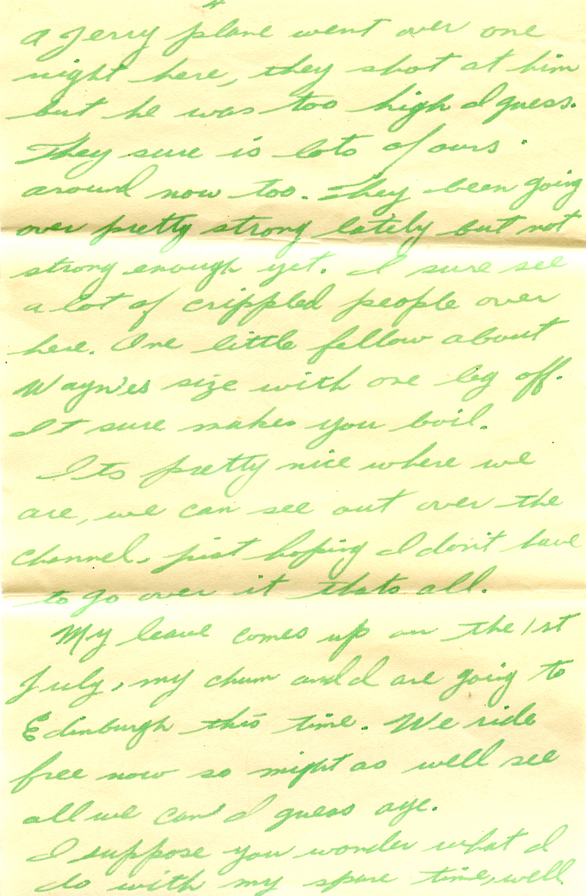 a Jerry plane went over one
night here, they shot at him
but he was too high I guess.
They sure is lots of ours
around now too. They been going
over pretty strong lately but not
strong enough yet. I sure see
a lot of crippled people over
here. One little fellow about
Wayn'es size with one leg off.
It sure makes you boil.
Its pretty nice where we
are, we can see out over the
channel, just hoping I don't have
to go over it thats all.
My leave comes up on the 1st
July, my chum and I are going to
Edinburgh this time. We ride
free now so might as well see
all we can I guess aye.
I suppose you wonder what I
do with my spare time, well